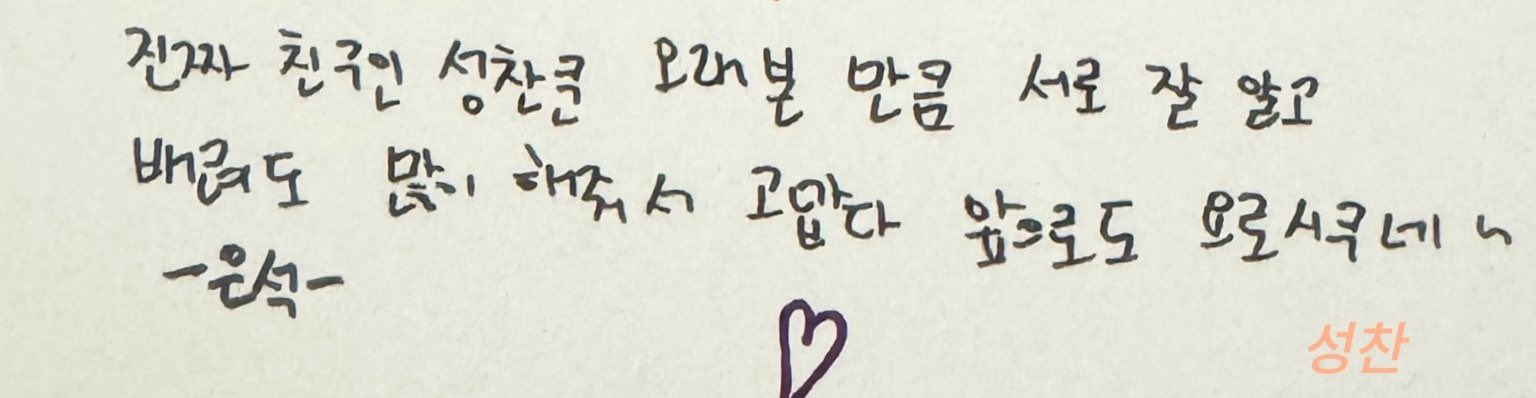 진짜 친구인 성찬쿤 오래본 만큼 서로 잘 알고
배려도 많이 해줘서 고맙다 앞으로도 요로시쿠네~
-은석-
성찬